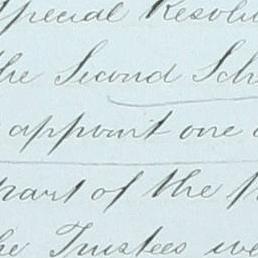 Special Resolu
the Second Sch
appoint one
part of the
he Trustees we